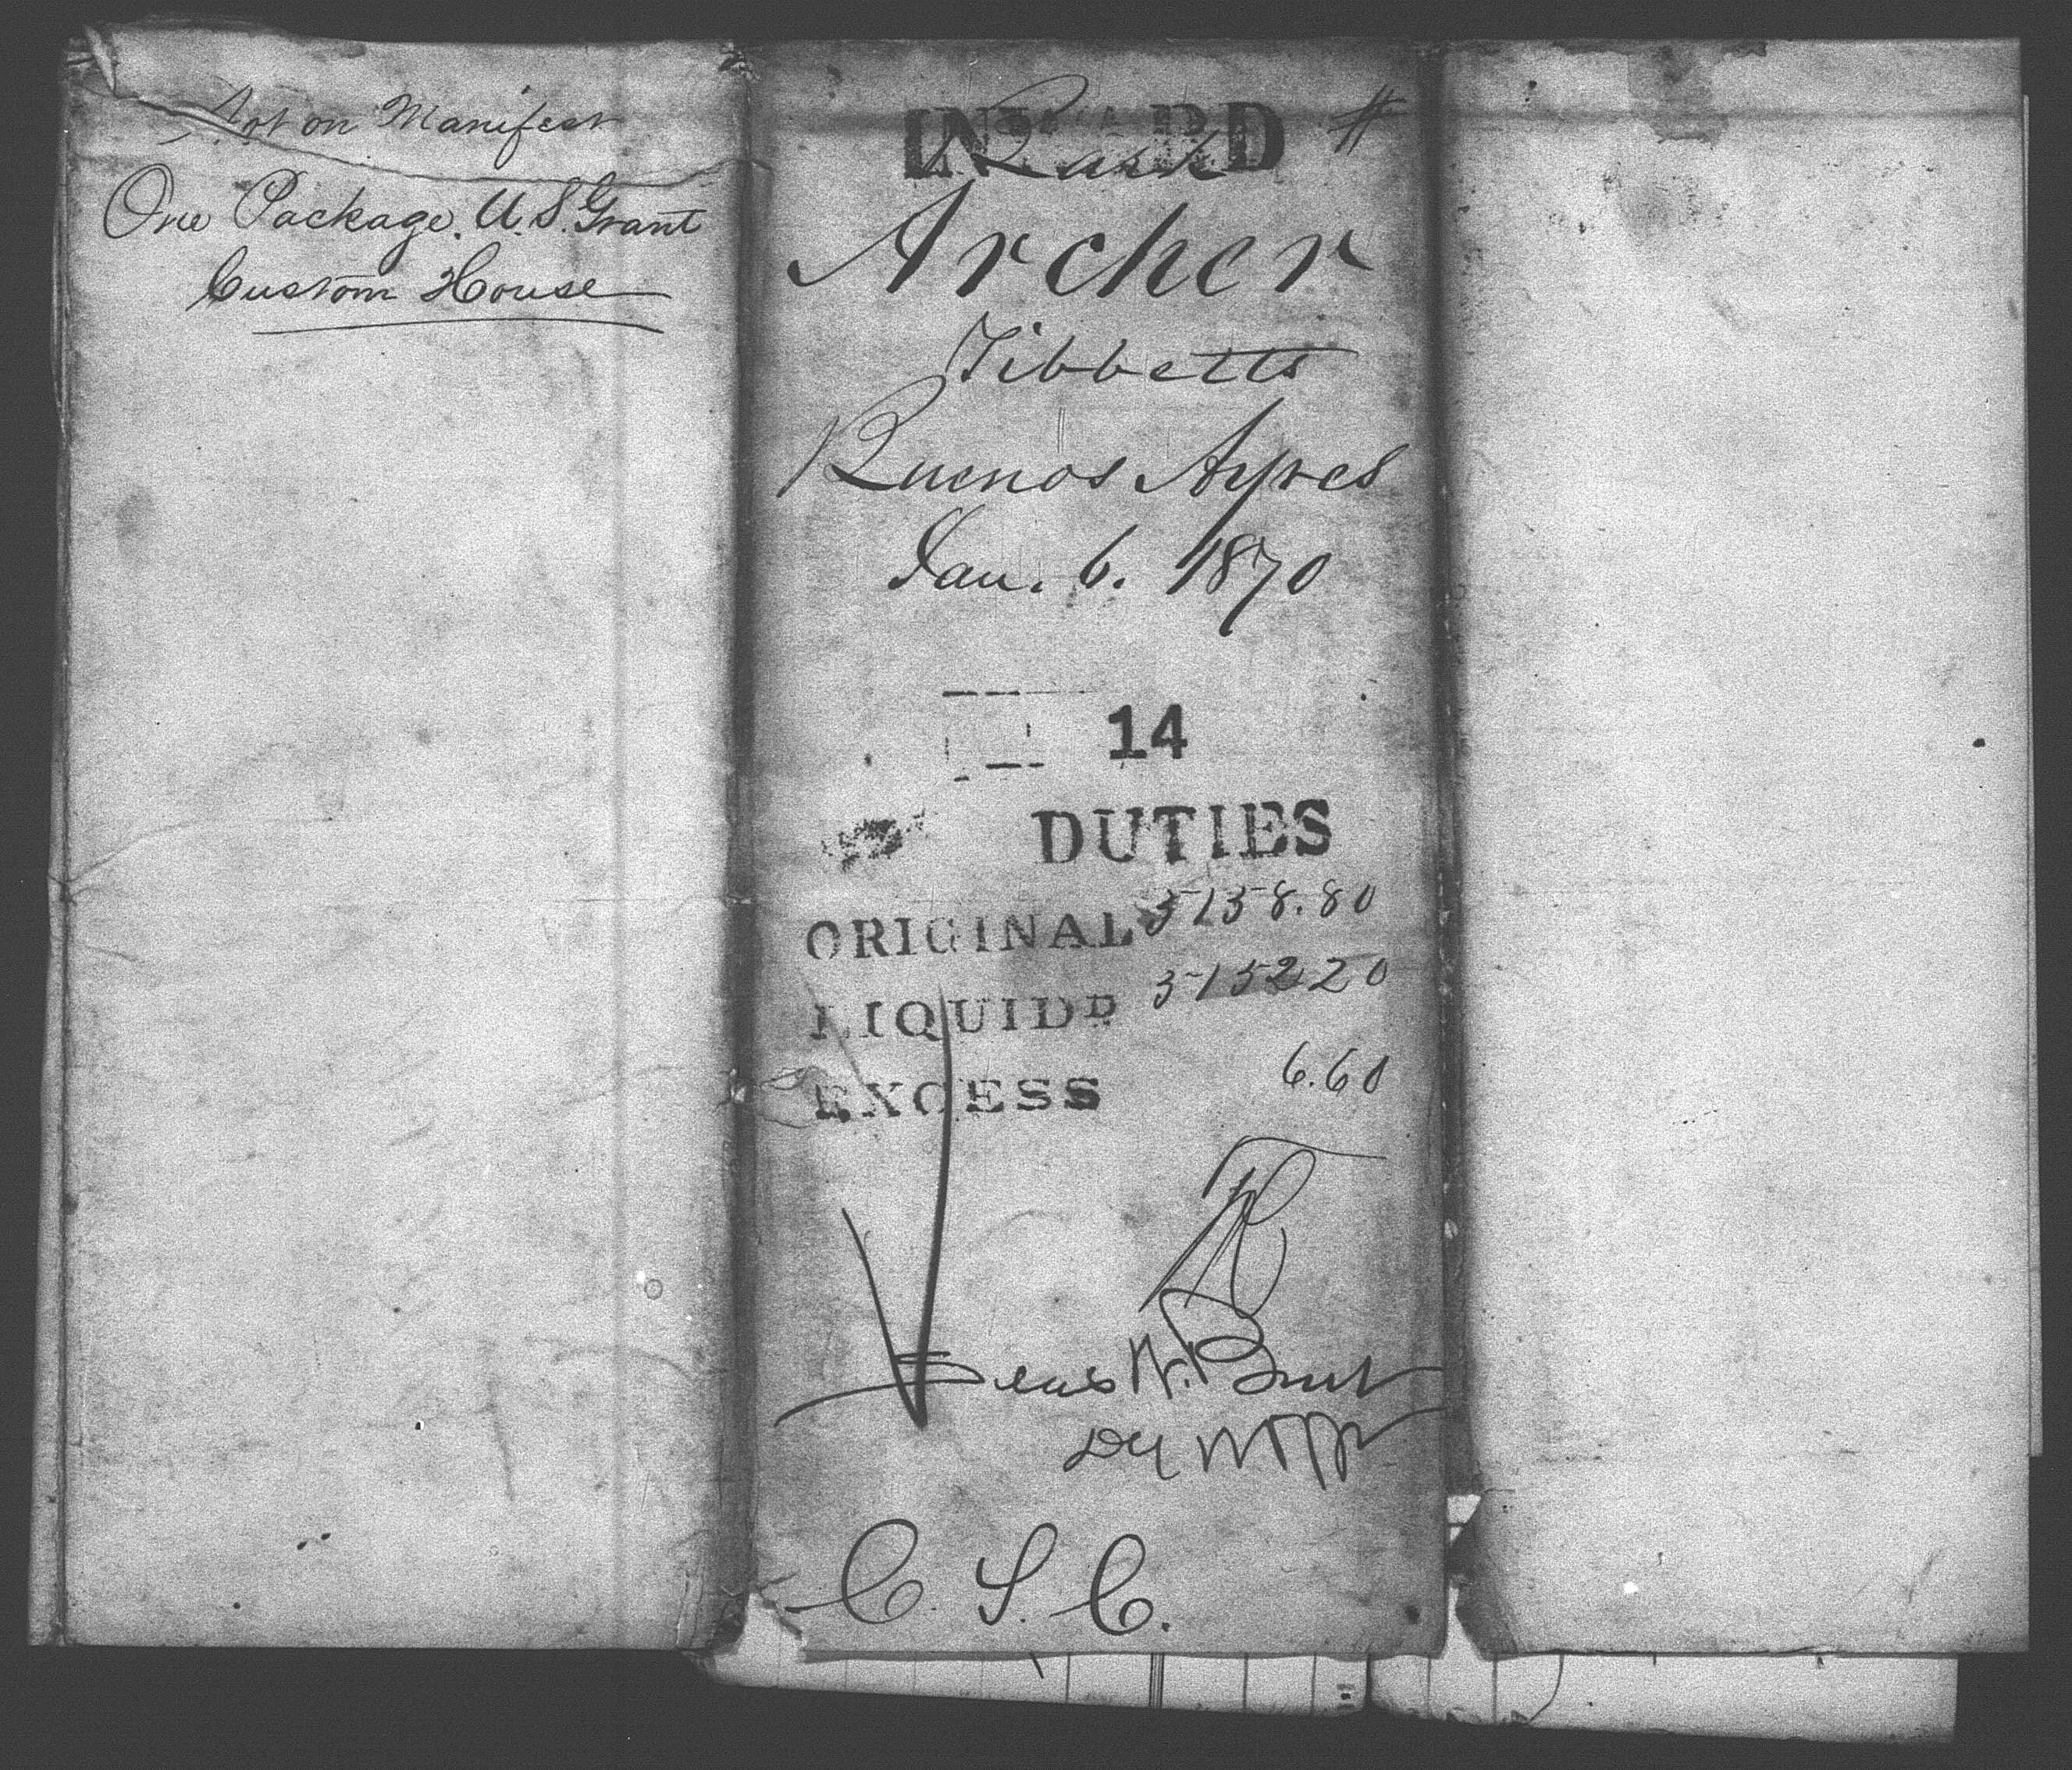 Not on Manifest
One Package. U. S. Grant
Custom House
INWARD #
Bark
Archer
Tibbetts
Buenos Ayres
Jan. 6. 1870
14
DUTIES
ORIGINAL 5158.80
LIQUIDD 5152 20
EXCESS 6.60
C. S. C.